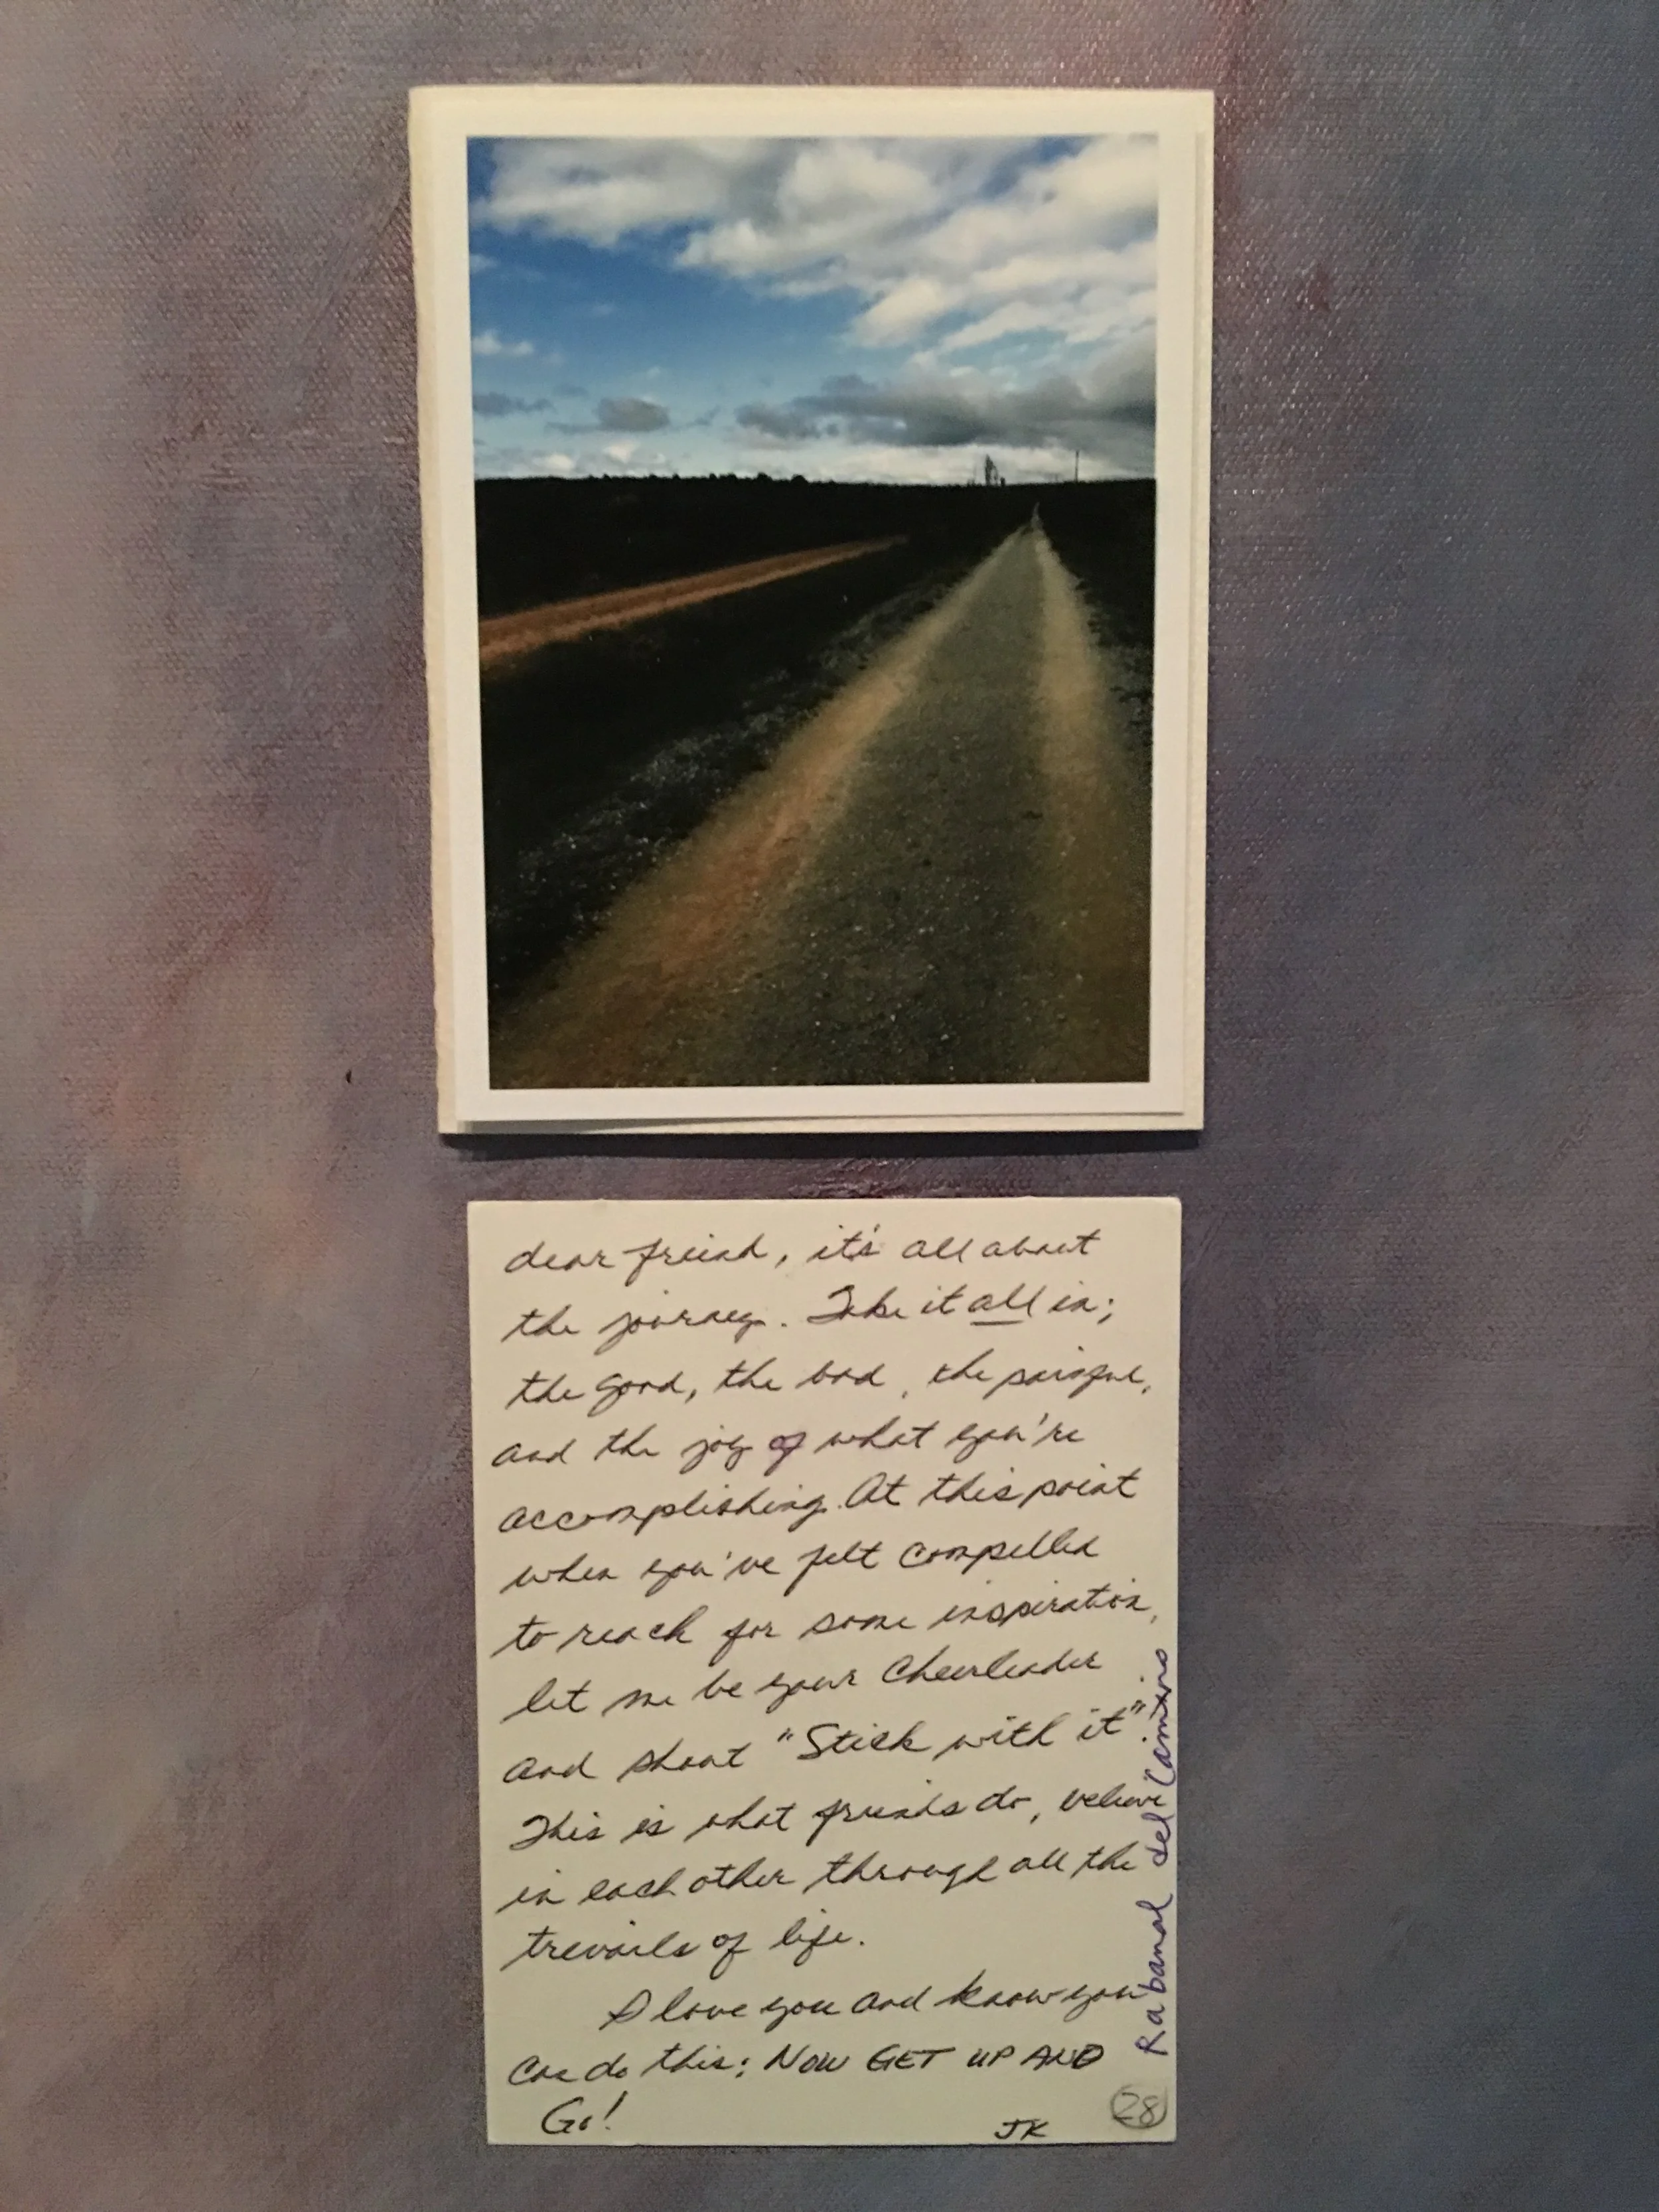 dear friend, it's all about
the journey. Take it all in;
the good, the bad, the painful,
and the joy of what you're
accomplishing. At this point
when you've felt compelled
to reach for some inspiration,
let me be your Cheerleader
and shout "Stick with it".
This is what friends do, believe
in each other through all the
trevails of life.
I love you and know you
can do this; NOW GET UP AND
Go!
JK
28
Rabanal del Camino